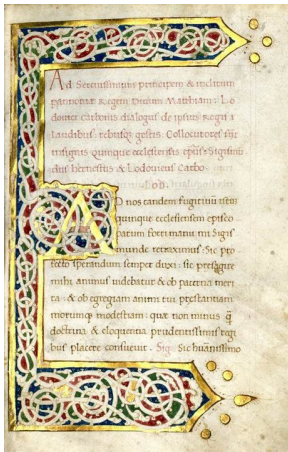 Ad Serenissimum principem & inclitum
pannoniae Regem Divum Mathiam: Lo
dovici Carbonis dialogus de ipsius Regis
laudibus rebusq; gestis. Collocutores sūt
insignis quinque ecclesiensis ep̄us. Sigismū
dus hernestus & Lodovicus Carbo
Lod.
AD nos tandem fugitivū istū
quinque ecclesiensem episco
patum forti manu mi Sigis
munde retraximus: Sic pro
fecto sperandum semper duxi: sic presagire
mihi animus videbatur & ob paterna meri
ta: & ob egregiam animi tui prestantiam
morumq; modestiam: quae non minus q̄
doctrina & eloquentia prudentissimis regi
bus placere consuevit. Sig. Sic huanissimo